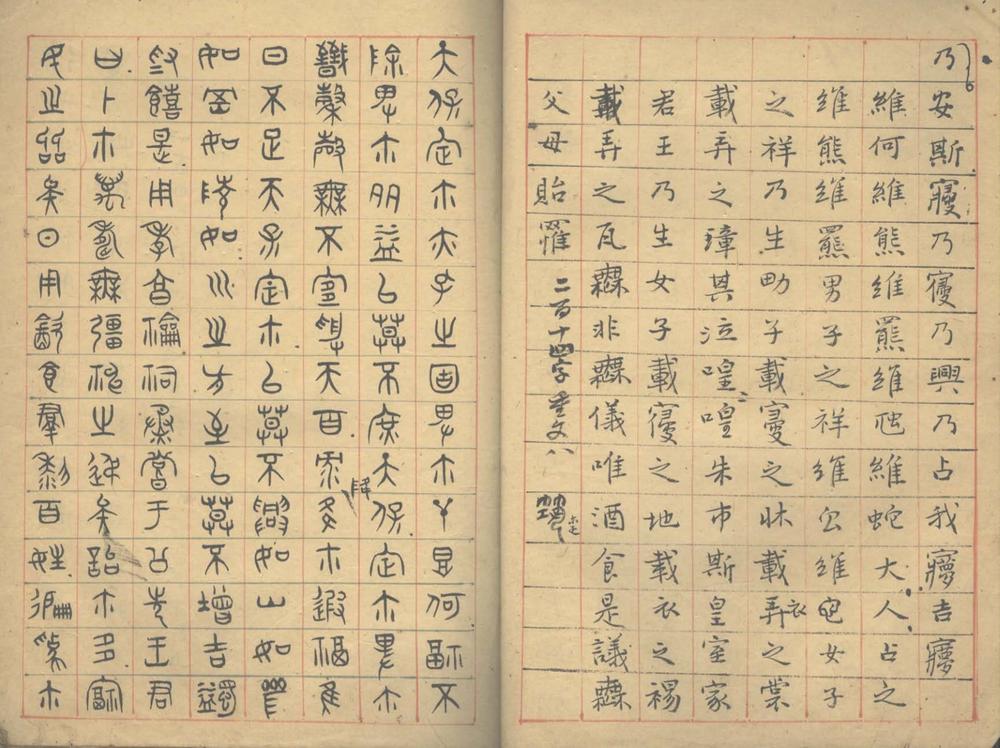 乃安斯寢乃寢乃興乃占我㝱吉㝱
維何維熊維羆維虺維蛇大人占之
維熊維羆男子之祥維虫維它女子
之祥乃生男子載寢之牀載衣之裳
載弄之璋其泣喤喤朱巿斯皇室家
君王乃生女子載寢之地載衣之裼
載弄之瓦無非無儀唯酒食是議無
父母貽罹 二百十四字 重文八
天保定尒亦孔之固畀尒單㫗何福不
除畀尒多益以莫不庶天保定尒畀尒
戩罄穀無不宜受天百祿降尒遐福隹
日不足天保定尒以莫不興如山如阜
如岡如陵如川之方至以莫不增吉蠲
為饎是用孝享禴祠烝嘗于公先王君
曰卜尒萬壽無疆神之弔矣詒尒多福
民之質矣日用飲食群黎百姓徧為尒